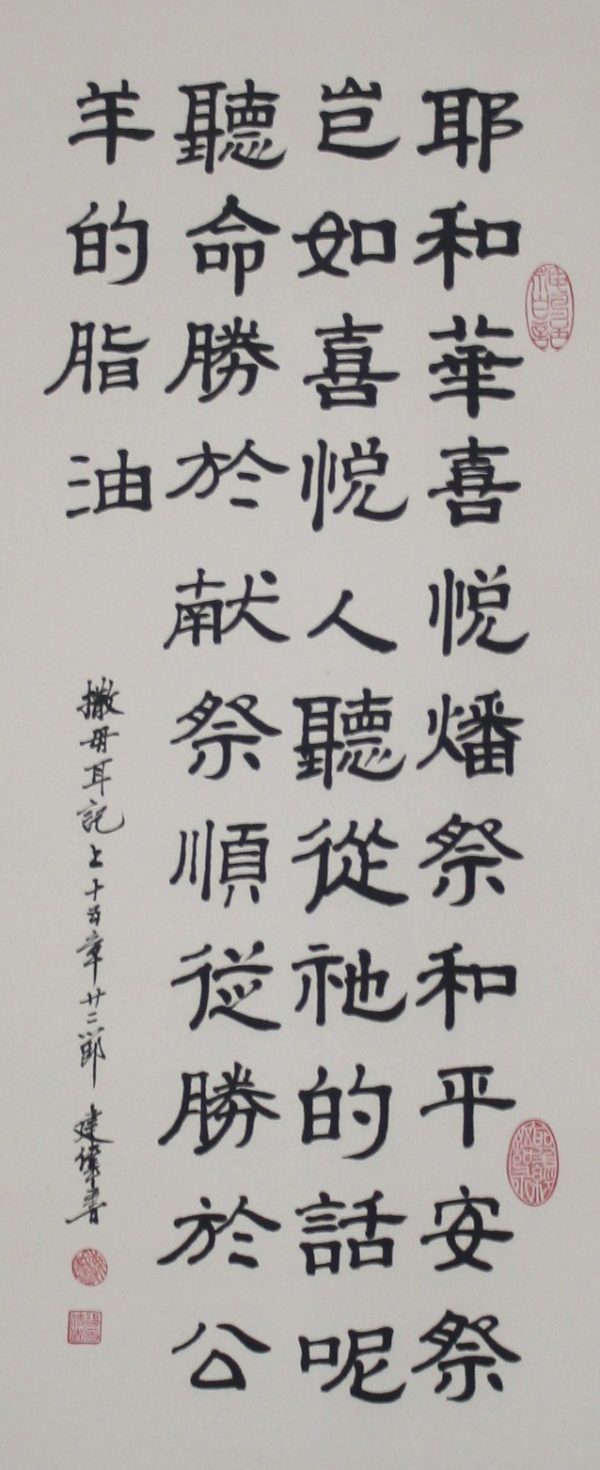 耶和華喜悅燔祭和平安祭
岂如喜悅人聽從祂的話呢
聽命勝於献祭順從勝於公
羊的脂油
撒母耳記上十五章廿二節 建偉書
神的話